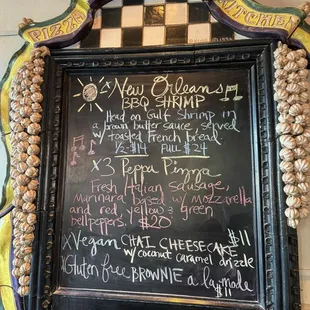 PIZZA
KITCHEN
New Orleans
BBQ SHRIMP
Head on Gulf Shrimp in
a brown butter sauce, served
w/ toasted French bread
1/2-$14 FULL $24
X 3 Peppa Pizza
Fresh Italian sausage,
Marinara based w/ Mozzarella
and red, yellow & green
bellpeppers $20
X Vegan CHAI CHEESECAKE $11
w/ coconut caramel drizzle
X Gluten free BROWNIE a la mode
$11